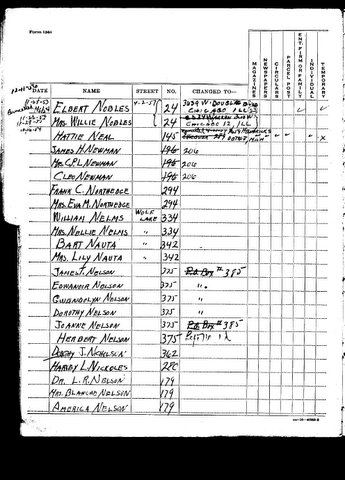 Form 1564
DATE NAME STREET NO. CHANGED TO— MAGAZINES NEWSPAPERS CIRCULARS PARCEL POST ENT. FIRM OR FAMILY INDIVIDUAL TEMPORARY
ELBERT NOBLES 4-2-57 24 3039 W. DOUGLAS BLVD CHICAGO ILL 23
MRS. WILLIE NOBLES 24 CHICAGO 12, ILL
HATTIE NEAL 145
JAMES H. NEWMAN 196 206
MRS. C.P.L. NEWMAN 196 206
CLEO NEWMAN 196 206
FRANK C. NORTHEDGE 294
MRS. EVA M. NORTHEDGE 294
WILLIAM NELMS WOLF LAKE 334
MRS. NELLIE NELMS " 334
BART NAUTA " 342
MRS. LILY NAUTA " 342
JAMES T. NELSON 375 P.O. Box # 385
EDWANOIR NELSON 375 "
GWENDOLYN NELSON 375 "
DOROTHY NELSON 375 "
JOANNE NELSON 375 P.O. Box # 385
HERBERT NELSON 375
DOROTHY J. NICHELSON 362
HARDY L. NICKOLES
DR. L.R. NELSON 179
MRS. BLANCHE NELSON 179
AMERICA NELSON 179